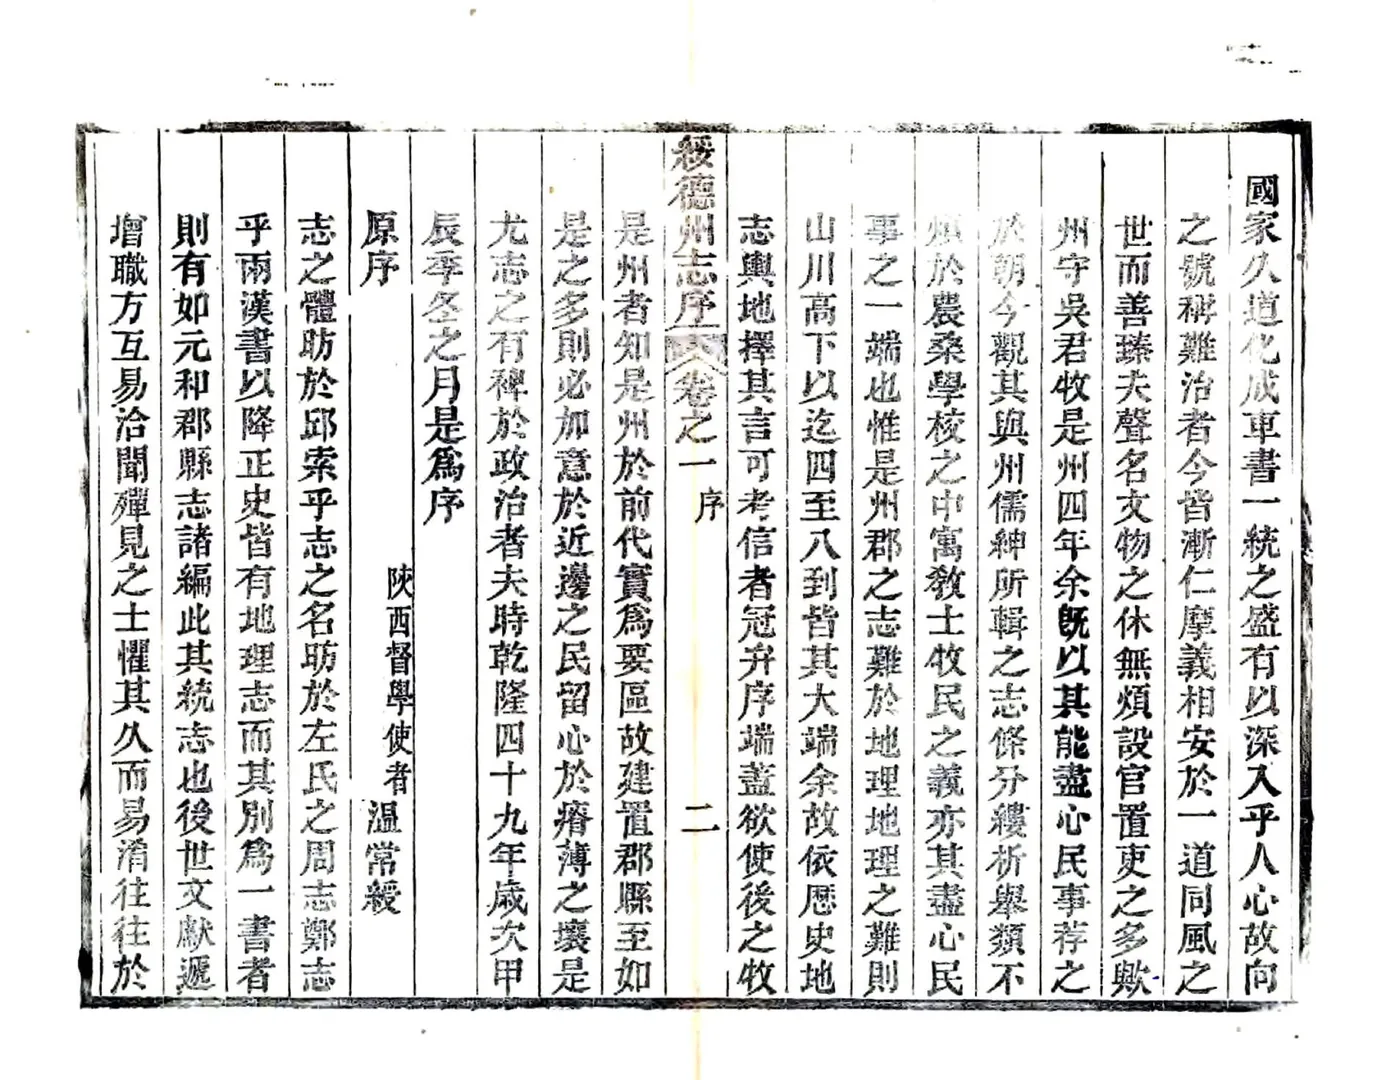 國家久道化成車書一統之盛有以深入乎人心故向
之號稱難治者今皆漸仁摩義相安於一道同風之
世而善臻夫聲名文物之休無煩設官置吏之多歟
州守吳君牧是州四年余既以其能盡心民事荐之
於朝今觀其與州儒紳所輯之志條分縷析舉類不
煩於農桑學校之中寓敎士牧民之義亦其盡心民
事之一端也惟是州郡之志難於地理地理之難則
山川高下以迄四至八到皆其大端余故依歷史地
志輿地擇其言可考信者冠弁序端蓋欲使後之牧
綏德州志序 卷之一 序 二
是州者知是州於前代實爲要區故建置郡縣至如
是之多則必加意於近邊之民留心於瘠薄之壤是
尤志之有裨於政治者夫時乾隆四十九年歲次甲
辰季冬之月是爲序
原序
陝西督學使者 温常綬
志之體昉於邱索乎志之名昉於左氏之周志鄭志
乎兩漢書以降正史皆有地理志而其別爲一書者
則有如元和郡縣志諸編此其統志也後世文獻遞
增職方互易洽聞殫見之士懼其久而易淆往往於